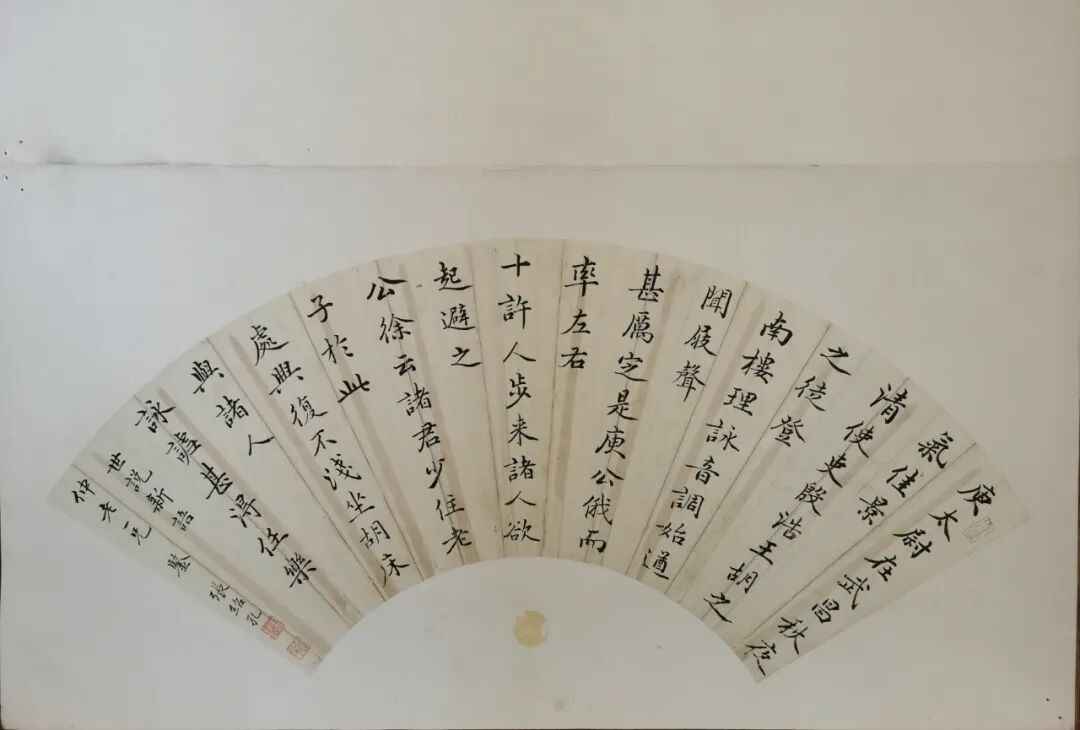 庾太尉在武昌秋夜
氣佳景
清使吏殷浩王胡之
之徒登
南樓理詠音調始遒
聞屐聲
甚厲定是庾公俄而
率左右
十許人步来諸人欲
起避之
公徐云諸君少住老
子於此
處興復不淺坐胡床
與諸人
詠謔甚得任樂
世說新語
仲老一兄 鑒 張紹孔